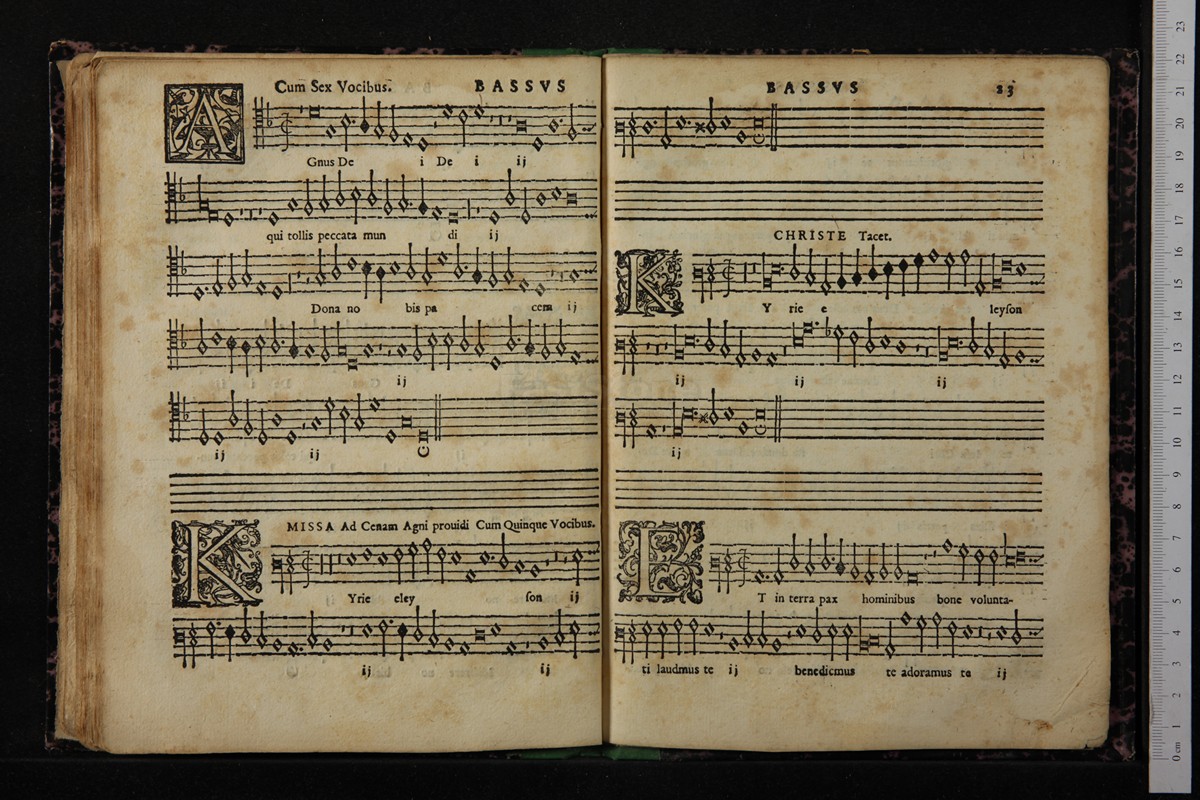 Cum Sex Vocibus. BASSVS
AGnus De i De i ij
qui tollis peccata mun di ij
Dona no bis pa cem ij
ij
ij ij
MISSA Ad Cenam Agni prouidi Cum Quinque Vocibus.
KYrie eley son ij
ij ij
BASSVS 23
CHRISTE Tacet.
KY rie e leyson
ij ij ij
ij
ET in terra pax hominibus bone volunta-
ti laudmus te ij benedicmus te adoramus te ij
0 cm 1 2 3 4 5 6 7 8 9 10 11 12 13 14 15 16 17 18 19 20 21 22 23